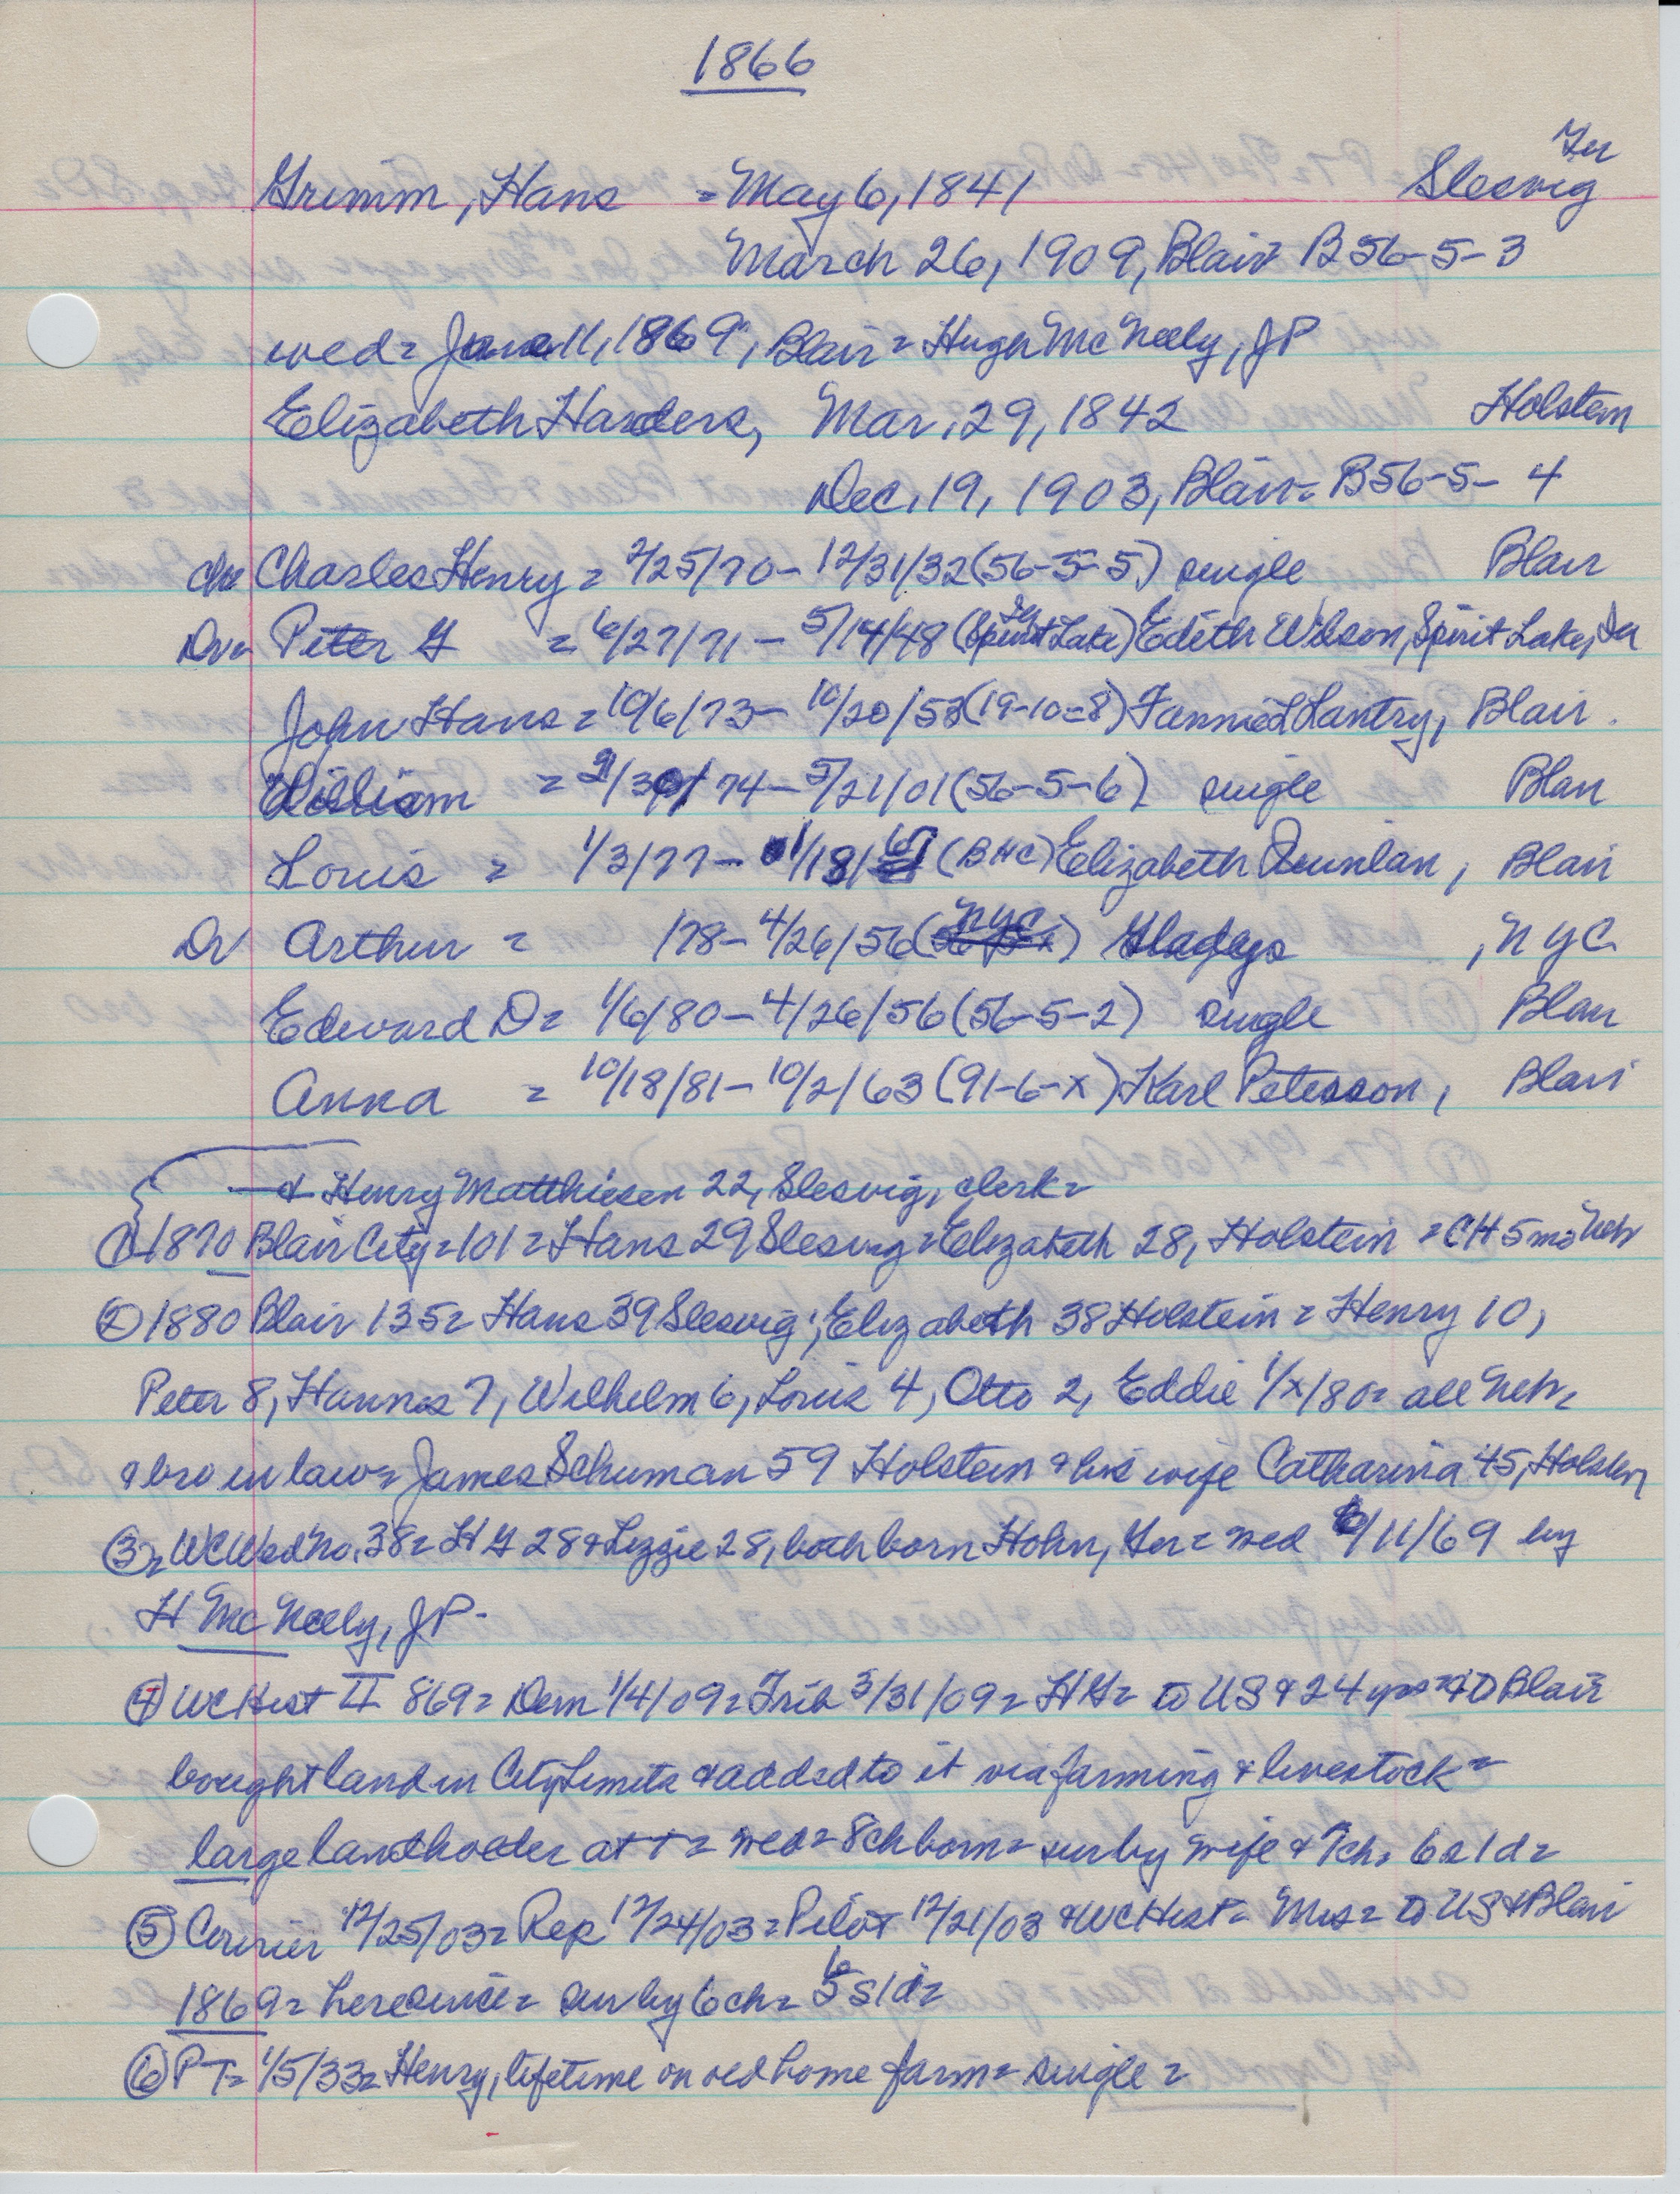 1866
Ger
Grimm, Hans = May 6, 1841 Slesvig
March 26, 1909, Blair B56-5-3
wed = June 11, 1869, Blair = Hugh McNeely, JP
Elizabeth Harders, Mar. 29, 1842 Holstein
Dec. 19, 1903, Blair = B56-5-4
Charles Henry = 2/25/70 - 12/31/32 (56-5-5) single Blair
Dr = Peter G = 6/27/71 - 5/14/48 (Spirit Lake) Edith Wilson, Spirit Lake, Ia
John Hans = 10/6/73 - 10/20/53 (19-10-8) Fannie L Lantry, Blair.
William = 9/30/74 - 5/21/01 (56-5-6) single Blair
Louis = 1/3/77 - 1/18/67 (BHC) Elizabeth Quinlan, Blair
Dr Arthur = /78 - 4/26/56 (NYC) Gladys, NYC
Edward D = 1/6/80 - 4/26/56 (56-5-2) single Blair
Anna = 10/18/81 - 10/2/63 (91-6-x) Karl Peterson, Blair
& Henry Matthiesen 22, Slesvig, clerk =
① 1870 Blair City = 101 = Hans 29 Slesvig = Elizabeth 28, Holstein = CH 5 mo Neb
② 1880 Blair 135 = Hans 39 Slesvig; Elizabeth 38 Holstein = Henry 10,
Peter 8, Hannes 7, Wilhelm 6, Louis 4, Otto 2, Eddie 1/x/80 = all Neb =
& bro in law = James Schuman 59 Holstein & his wife Catharina 45, Holstein
③ = WC Wed No. 38 = HG 28 & Lizzie 28, both born Holn, Ger = wed 6/11/69 by
H McNeely, JP -
④ WCHist II 869 = Dem 1/4/09 = Trib 3/31/09 = HG = to US @ 24 yrs = & to Blair
bought land in City Limits & added to it via farming & livestock =
large landholder at + = wed = 8 ch born = sur by wife & 7 ch. 6s 1d =
⑤ Courier 12/25/03 = Rep 12/24/03 = Pilot 12/21/03 & WCHist = Mrs = to US & Blair
6
1869 = here since = sur by 6 ch = 5s 1d =
⑥ PT = 1/5/33 = Henry, lifetime on old home farm = single =